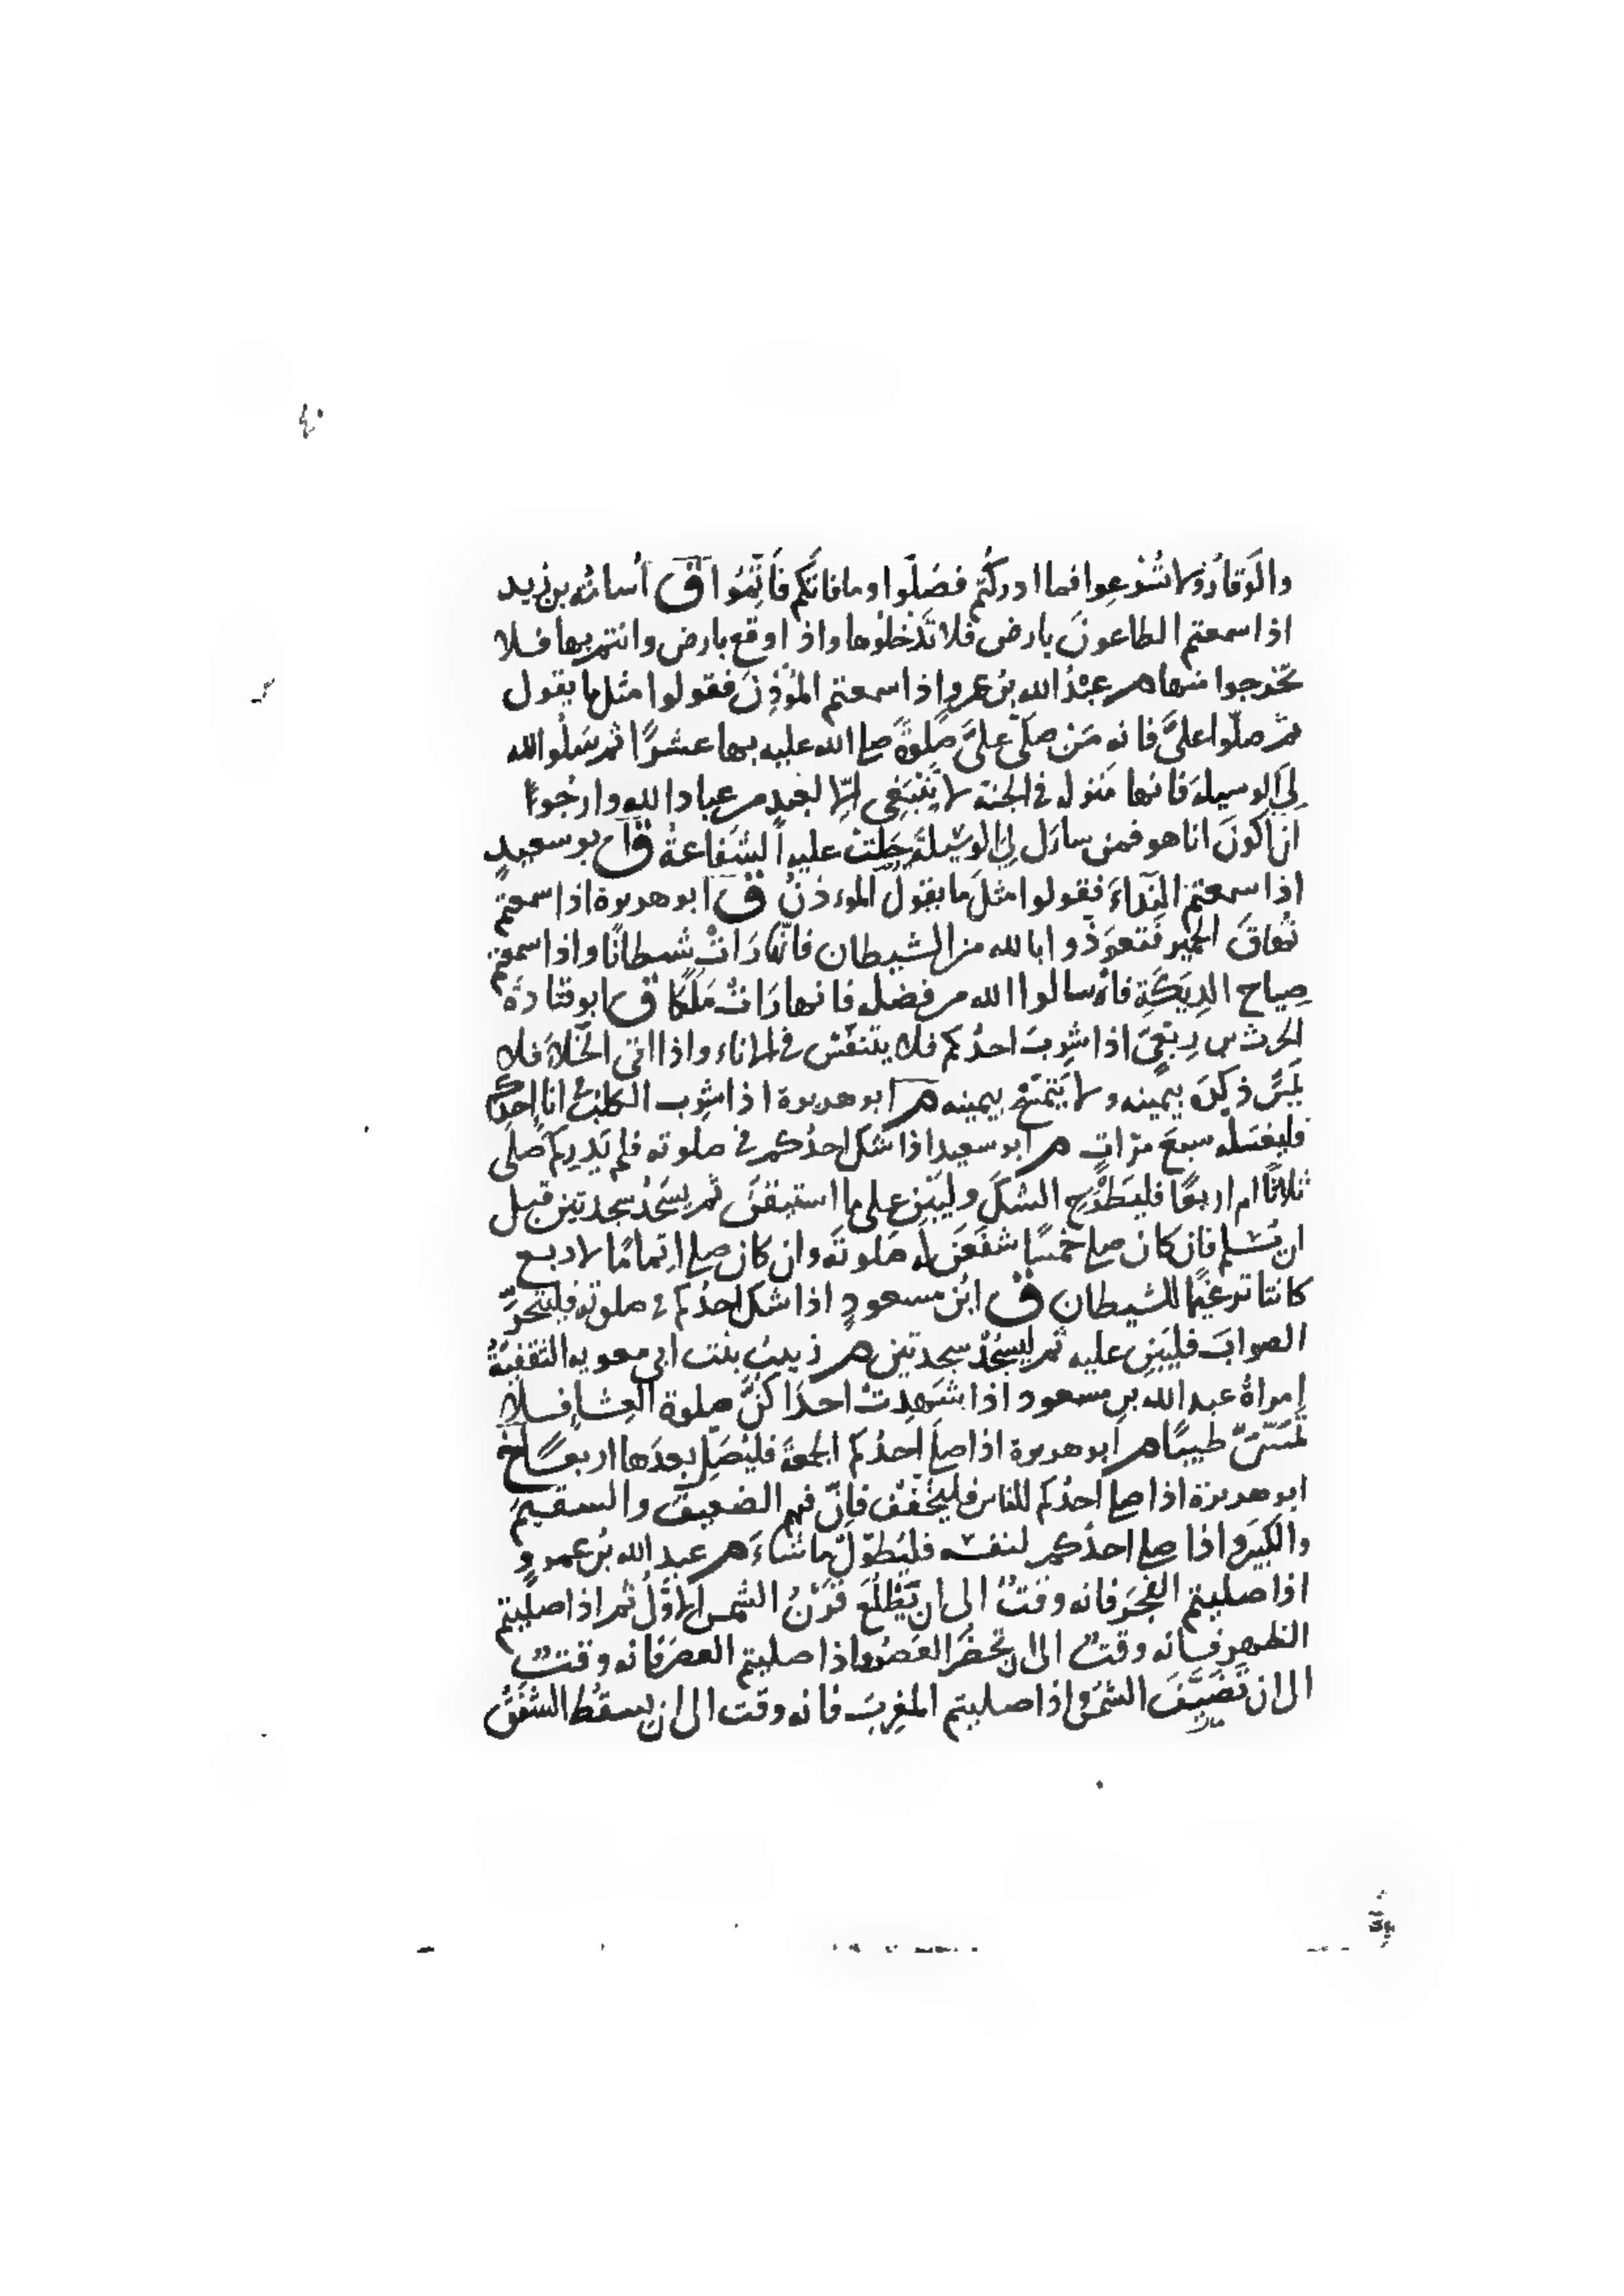 والوقار ولا تسرعوا فما ادركتم فصلوا وما فاتكم فاتموا ق اسامة بن زيد
اذا سمعتم الطاعون بارض فلا تدخلوها واذا وقع بارض وانتم بها فلا
تخرجوا منها م عبد الله بن عمرو اذا سمعتم المؤذن فقولوا مثل ما يقول
ثم صلوا علي فانه من صلى علي صلوة صلى الله عليه بها عشرا ثم سلوا الله
لي الوسيلة فانها منزلة في الجنة لا ينبغي الا لعبد من عباد الله وارجوا
ان اكون انا هو فمن سأل لي الوسيلة حلت عليه الشفاعة ق ابو سعيد
اذا سمعتم النداء فقولوا مثل ما يقول الموءذن ق ابو هريرة اذا سمعتم
نهاق الحمير فتعوذوا بالله من الشيطان فانها رات شيطانا واذا سمعتم
صياح الديكة فاسالوا الله من فضله فانها رات ملكا ق ابو قتادة
الحرث بن ربعي اذا شرب احدكم فلا يتنفس في الاناء واذا اتى الخلاء فلا
يمس ذكره بيمينه ولا يتمسح بيمينه م ابو هريرة اذا شرب الكلب في انا احدكم
فليغسله سبع مرات م ابو سعيد اذا شك احدكم في صلوته فلم يدر كم صلى
ثلاثا ام اربعا فليطرح الشك وليبن على ما استيقن ثم يسجد سجدتين قبل
ان يسلم فان كان صلى خمسا شفعن له صلوته وان كان صلى اتماما لاربع
كانتا ترغيما للشيطان ق ابن مسعود اذا شك احدكم في صلوته فليتحر
الصواب فليبن عليه ثم ليسجد سجدتين م زينب بنت ابي معوية الثقفية
امراة عبد الله بن مسعود اذا شهدت احداكن صلوة العشاء فلا
تمس طيبا م ابو هريرة اذا صلى احدكم الجمعة فليصل بعدها اربعا خ
ابو هريرة اذا صلى احدكم للناس فليخفف فان فيهم الضعيف والسقيم
والكبير واذا صلى احدكم لنفسه فليطول ما شاء م عبد الله بن عمرو
اذا صليتم الفجر فانه وقت الى ان يطلع قرن الشمس الاول ثم اذا صليتم
الظهر فانه وقت الى ان يحضر العصر واذا صليتم العصر فانه وقت
الى ان تضيف الشمس واذا صليتم المغرب فانه وقت الى ان يسقط الشفق